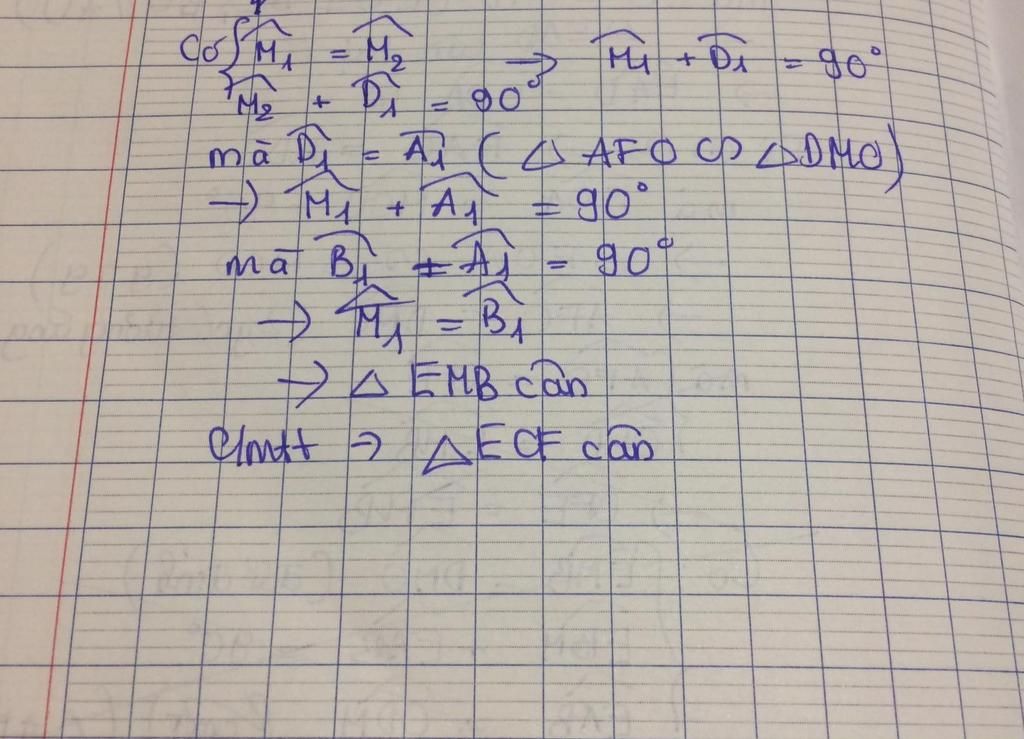 Có { M̂1 = M̂2 → M̂1 + D̂1 = 90°
M̂2 + D̂1 = 90°
mà D̂1 = Â1 ( △ AFO ∽ △DMO)
→ M̂1 + Â1 = 90°
mà B̂1 + Â1 = 90°
→ M̂1 = B̂1
→ △ EMB cân
Cmtt → △ECF cân